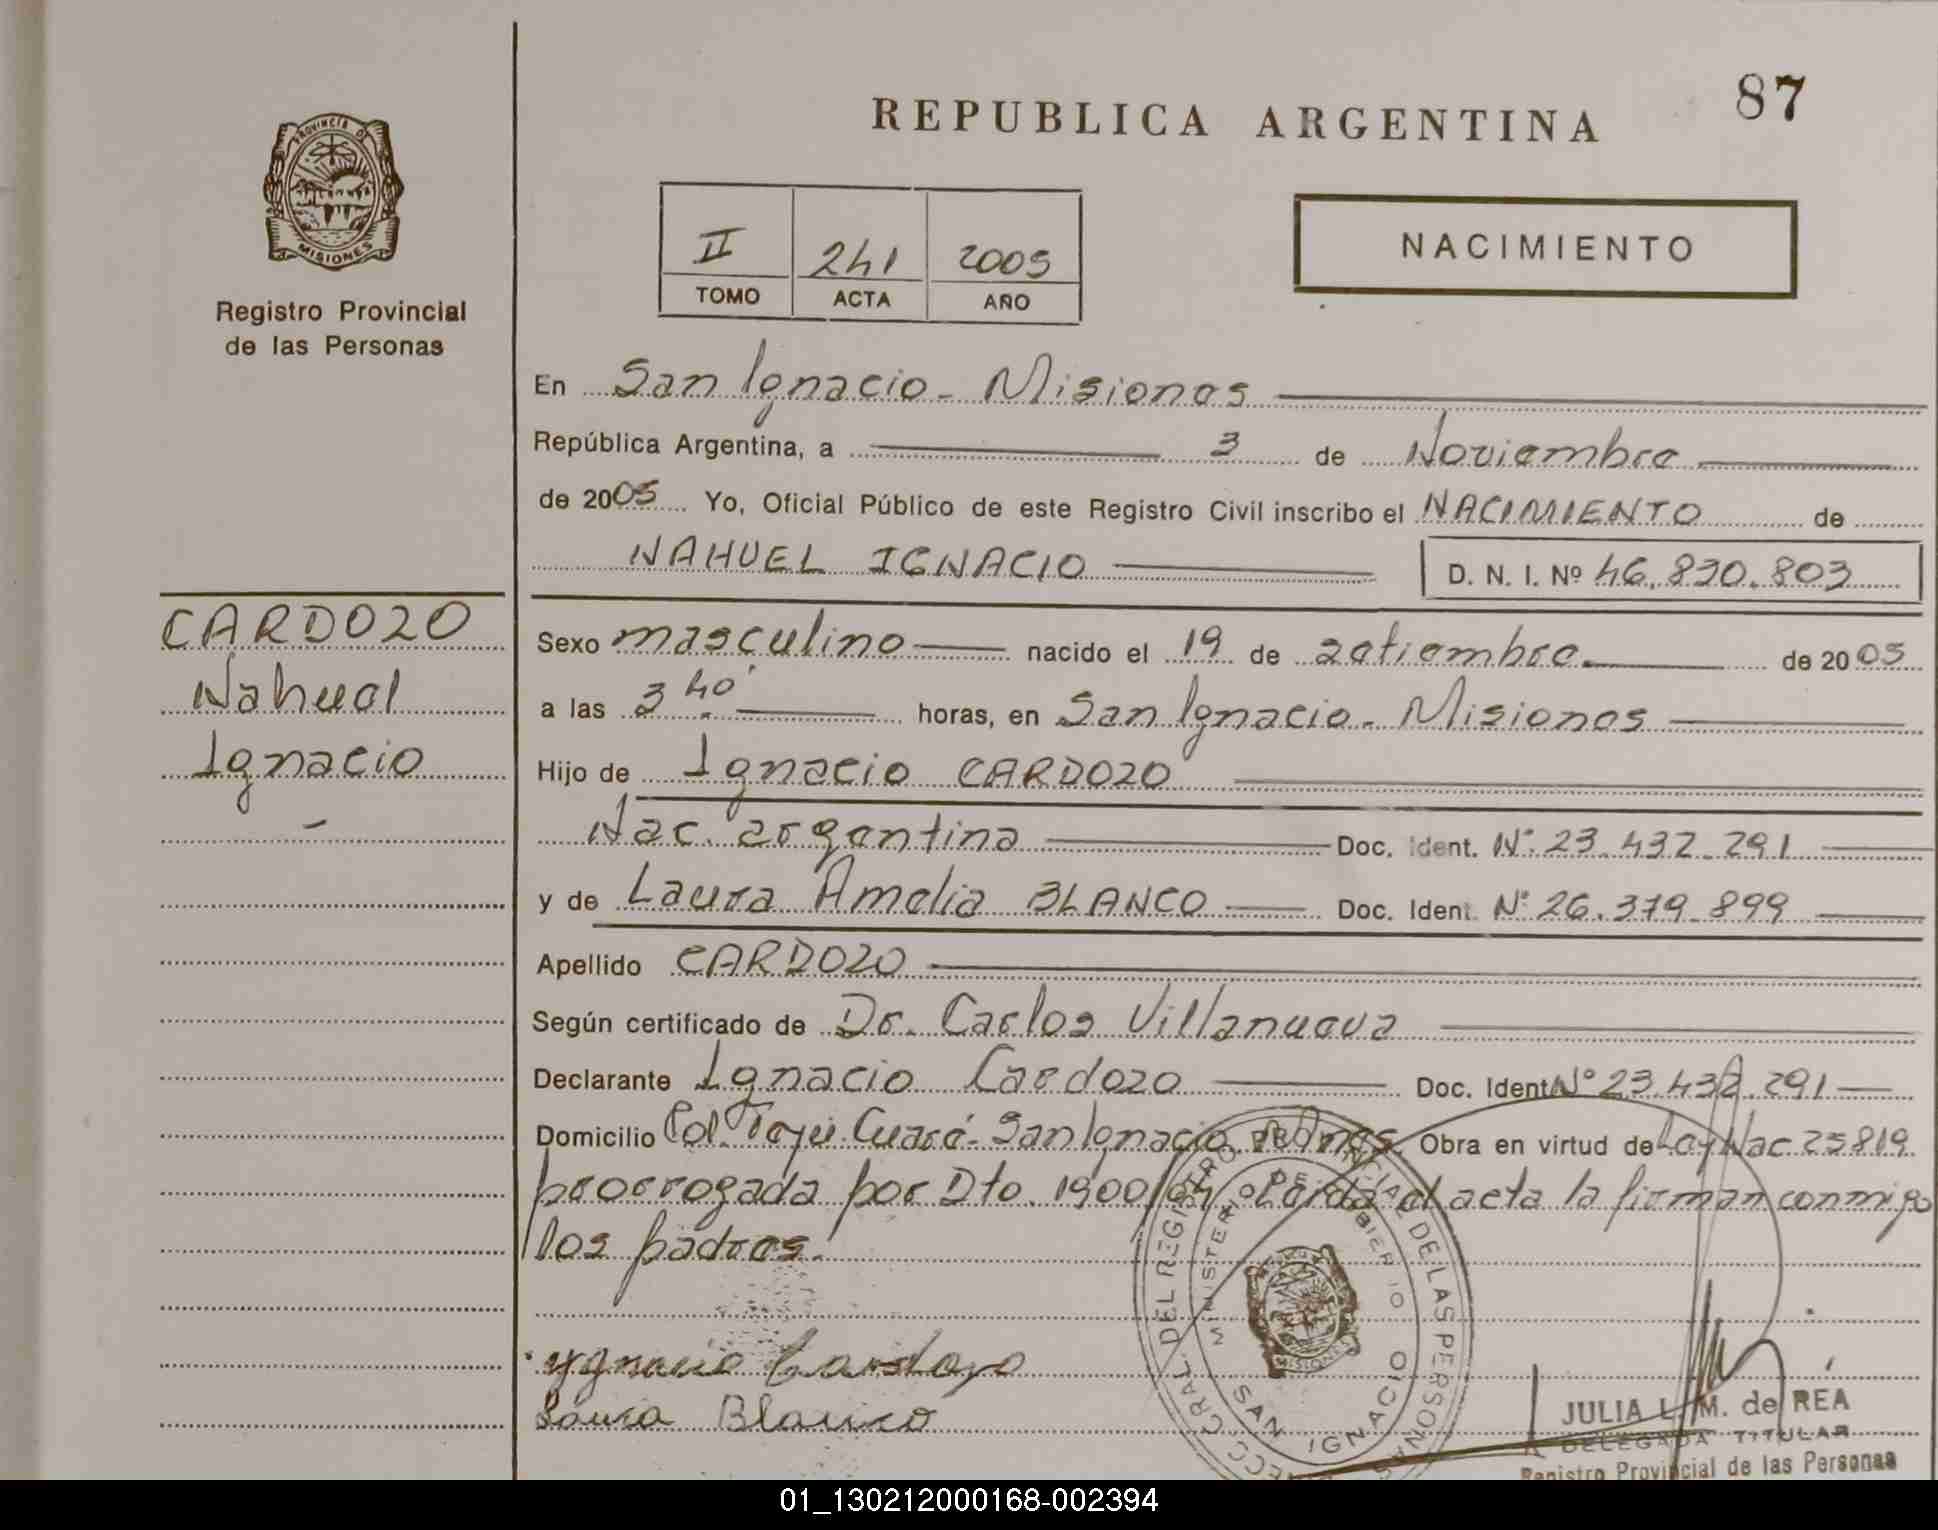 87
REPUBLICA ARGENTINA
PROVINCIA DE
MISIONES
Registro Provincial
de las Personas
II 241 2005
TOMO ACTA AÑO
NACIMIENTO
En San Ignacio - Misiones
República Argentina, a 3 de Noviembre
de 2005 Yo, Oficial Público de este Registro Civil inscribo el NACIMIENTO de
NAHUEL IGNACIO D. N. I. Nº 46.830.803
CARDOZO
Nahuel
Ignacio
Sexo masculino nacido el 19 de setiembre de 2005
a las 3 40' horas, en San Ignacio - Misiones
Hijo de Ignacio CARDOZO
Nac. argentina Doc. Ident. Nº 23.432.291
y de Laura Amelia BLANCO Doc. Ident. Nº 26.379.899
Apellido CARDOZO
Según certificado de Dr. Carlos Villanueva
Declarante Ignacio Cardozo Doc. Ident Nº 23.432.291
Domicilio Col. Teyú Cuaré - San Ignacio Mnes. Obra en virtud de Ley Nac 25819
prorrogada por Dto. 1900/04 Leída el acta la firman conmigo
los padres.
Ygnacio Cardozo
Laura Blanco
DEL REGISTRO PROVINCIAL DE LAS PERSONAS
MINISTERIO DE GOBIERNO
MISIONES
SAN IGNACIO
JULIA L. M. de REA
DELEGADA TITULAR
Registro Provincial de las Personas
01_130212000168-002394